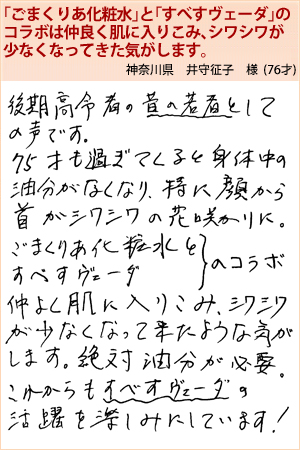 「ごまくりあ化粧水」と「すべすヴェーダ」の
コラボは仲良く肌に入りこみ、シワシワが
少なくなってきた気がします。
神奈川県　井守征子　様 (76才)
後期高令者の昔の若者として
の声です。
75才も過ぎてくると身体中の
油分がなくなり、特に顔から
首がシワシワの花咲かりに。
ごまくりあ化粧水と
すべすヴェーダ
のコラボ
仲よく肌に入りこみ、シワシワ
が少なくなって来たような気が
します。絶対油分が必要。
これからもすべすヴェーダの
活躍を楽しみにしています!